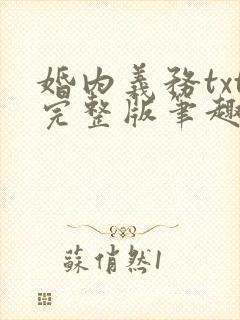 婚内義務txt
完整版筆趣
蘇俏然1